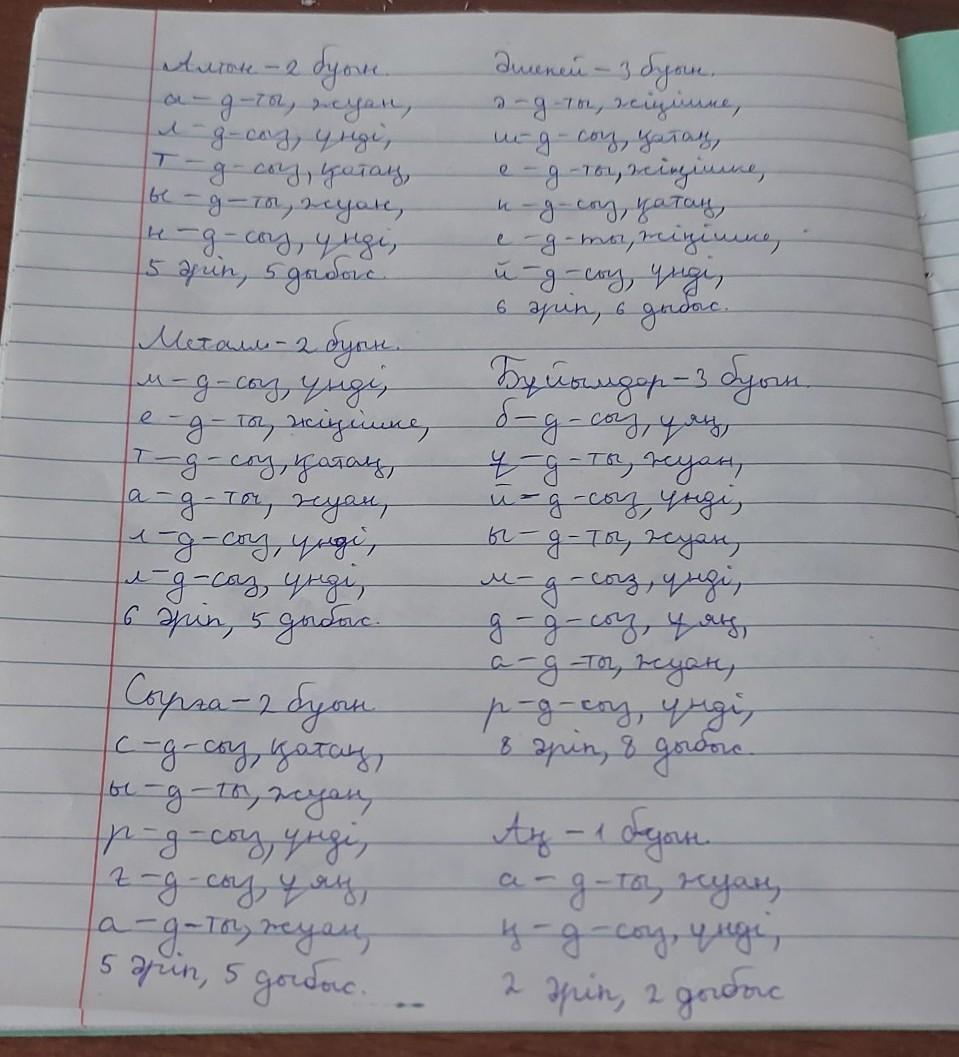 Алтын - 2 буын.
а - д - ты, жуан,
л - д - сыз, үнді,
т - д - сыз, қатаң,
ы - д - ты, жуан,
н - д - сыз, үнді,
5 әріп, 5 дыбыс.
Металл - 2 буын.
м - д - сыз, үнді,
е - д - ты, жіңішке,
т - д - сыз, қатаң,
а - д - ты, жуан,
л - д - сыз, үнді,
л - д - сыз, үнді,
6 әріп, 5 дыбыс.
Сырға - 2 буын
с - д - сыз, қатаң,
ы - д - ты, жуан,
р - д - сыз, үнді,
ғ - д - сыз, ұяң,
а - д - ты, жуан,
5 әріп, 5 дыбыс.
Әшекей - 3 буын.
ә - д - ты, жіңішке,
ш - д - сыз, қатаң,
е - д - ты, жіңішке,
к - д - сыз, қатаң,
е - д - ты, жіңішке,
й - д - сыз, үнді,
6 әріп, 6 дыбыс.
Бұйымдар - 3 буын.
б - д - сыз, ұяң,
ұ - д - ты, жуан,
й - д - сыз, үнді,
ы - д - ты, жуан,
м - д - сыз, үнді,
д - д - сыз, ұяң,
а - д - ты, жуан,
р - д - сыз, үнді,
8 әріп, 8 дыбыс.
Аң - 1 буын.
а - д - ты, жуан,
ң - д - сыз, үнді,
2 әріп, 2 дыбыс